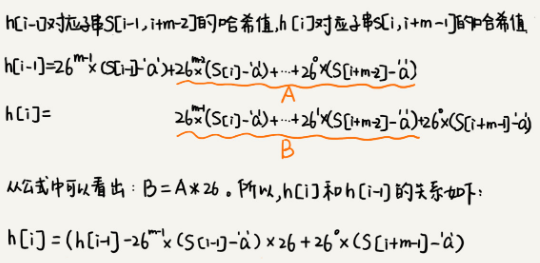 h[i-1]对应子串S[i-1,i+m-2]的哈希值,h[i]对应子串S[i,i+m-1]的哈希值
h[i-1]=26^(m-1)×(S[i-1]-'a')+26^(m-2)×(S[i]-'a')+…+26^0×(S[i+m-2]-'a')
A
h[i]= 26^(m-1)×(S[i]-'a')+…+26^1×(S[i+m-2]-'a')+26^0×(S[i+m-1]-'a')
B
从公式中可以看出:B=A*26。所以,h[i]和h[i-1]的关系如下:
h[i]=(h[i-1]-26^(m-1)×(S[i-1]-'a')×26+26^0×(S[i+m-1]-'a')